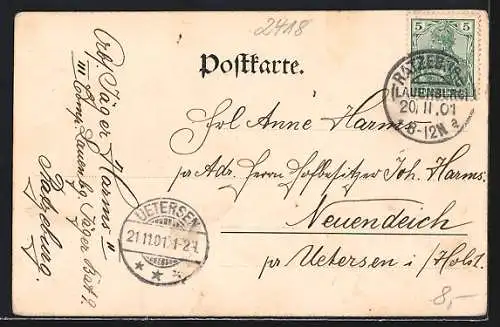 2418
5 5
Postkarte.
RATZEBURG
(LAUENBURG)
20.11.01
8-12N a
Frl Anne Harms
pr Adr. Herrn Hofbesitzer Joh. Harms.
Neuendeich
pr Uetersen i/Holst.
UETERSEN
21.11.01. 1-2N
Jäger Harms
III Comp. Lauenbg. Jäger Bat.
Ratzeburg.
8,-